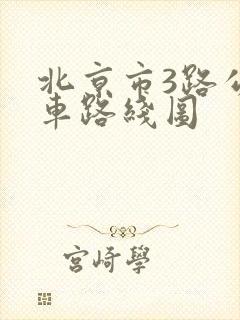 北京市3路公
車路綫圖
宮崎學